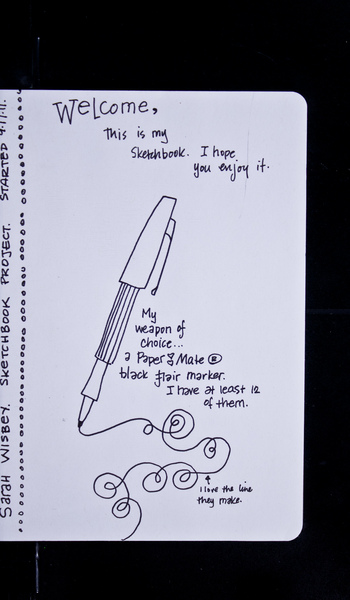 Welcome,
This is my
Sketchbook. I hope
you enjoy it.
My
weapon of
choice...
a Paper & Mate ®
black flair marker.
I have at least 12
of them.
I love the line
they make.
Sarah Wisbey. SKETCHBOOK PROJECT. STARTED 9.17.11.